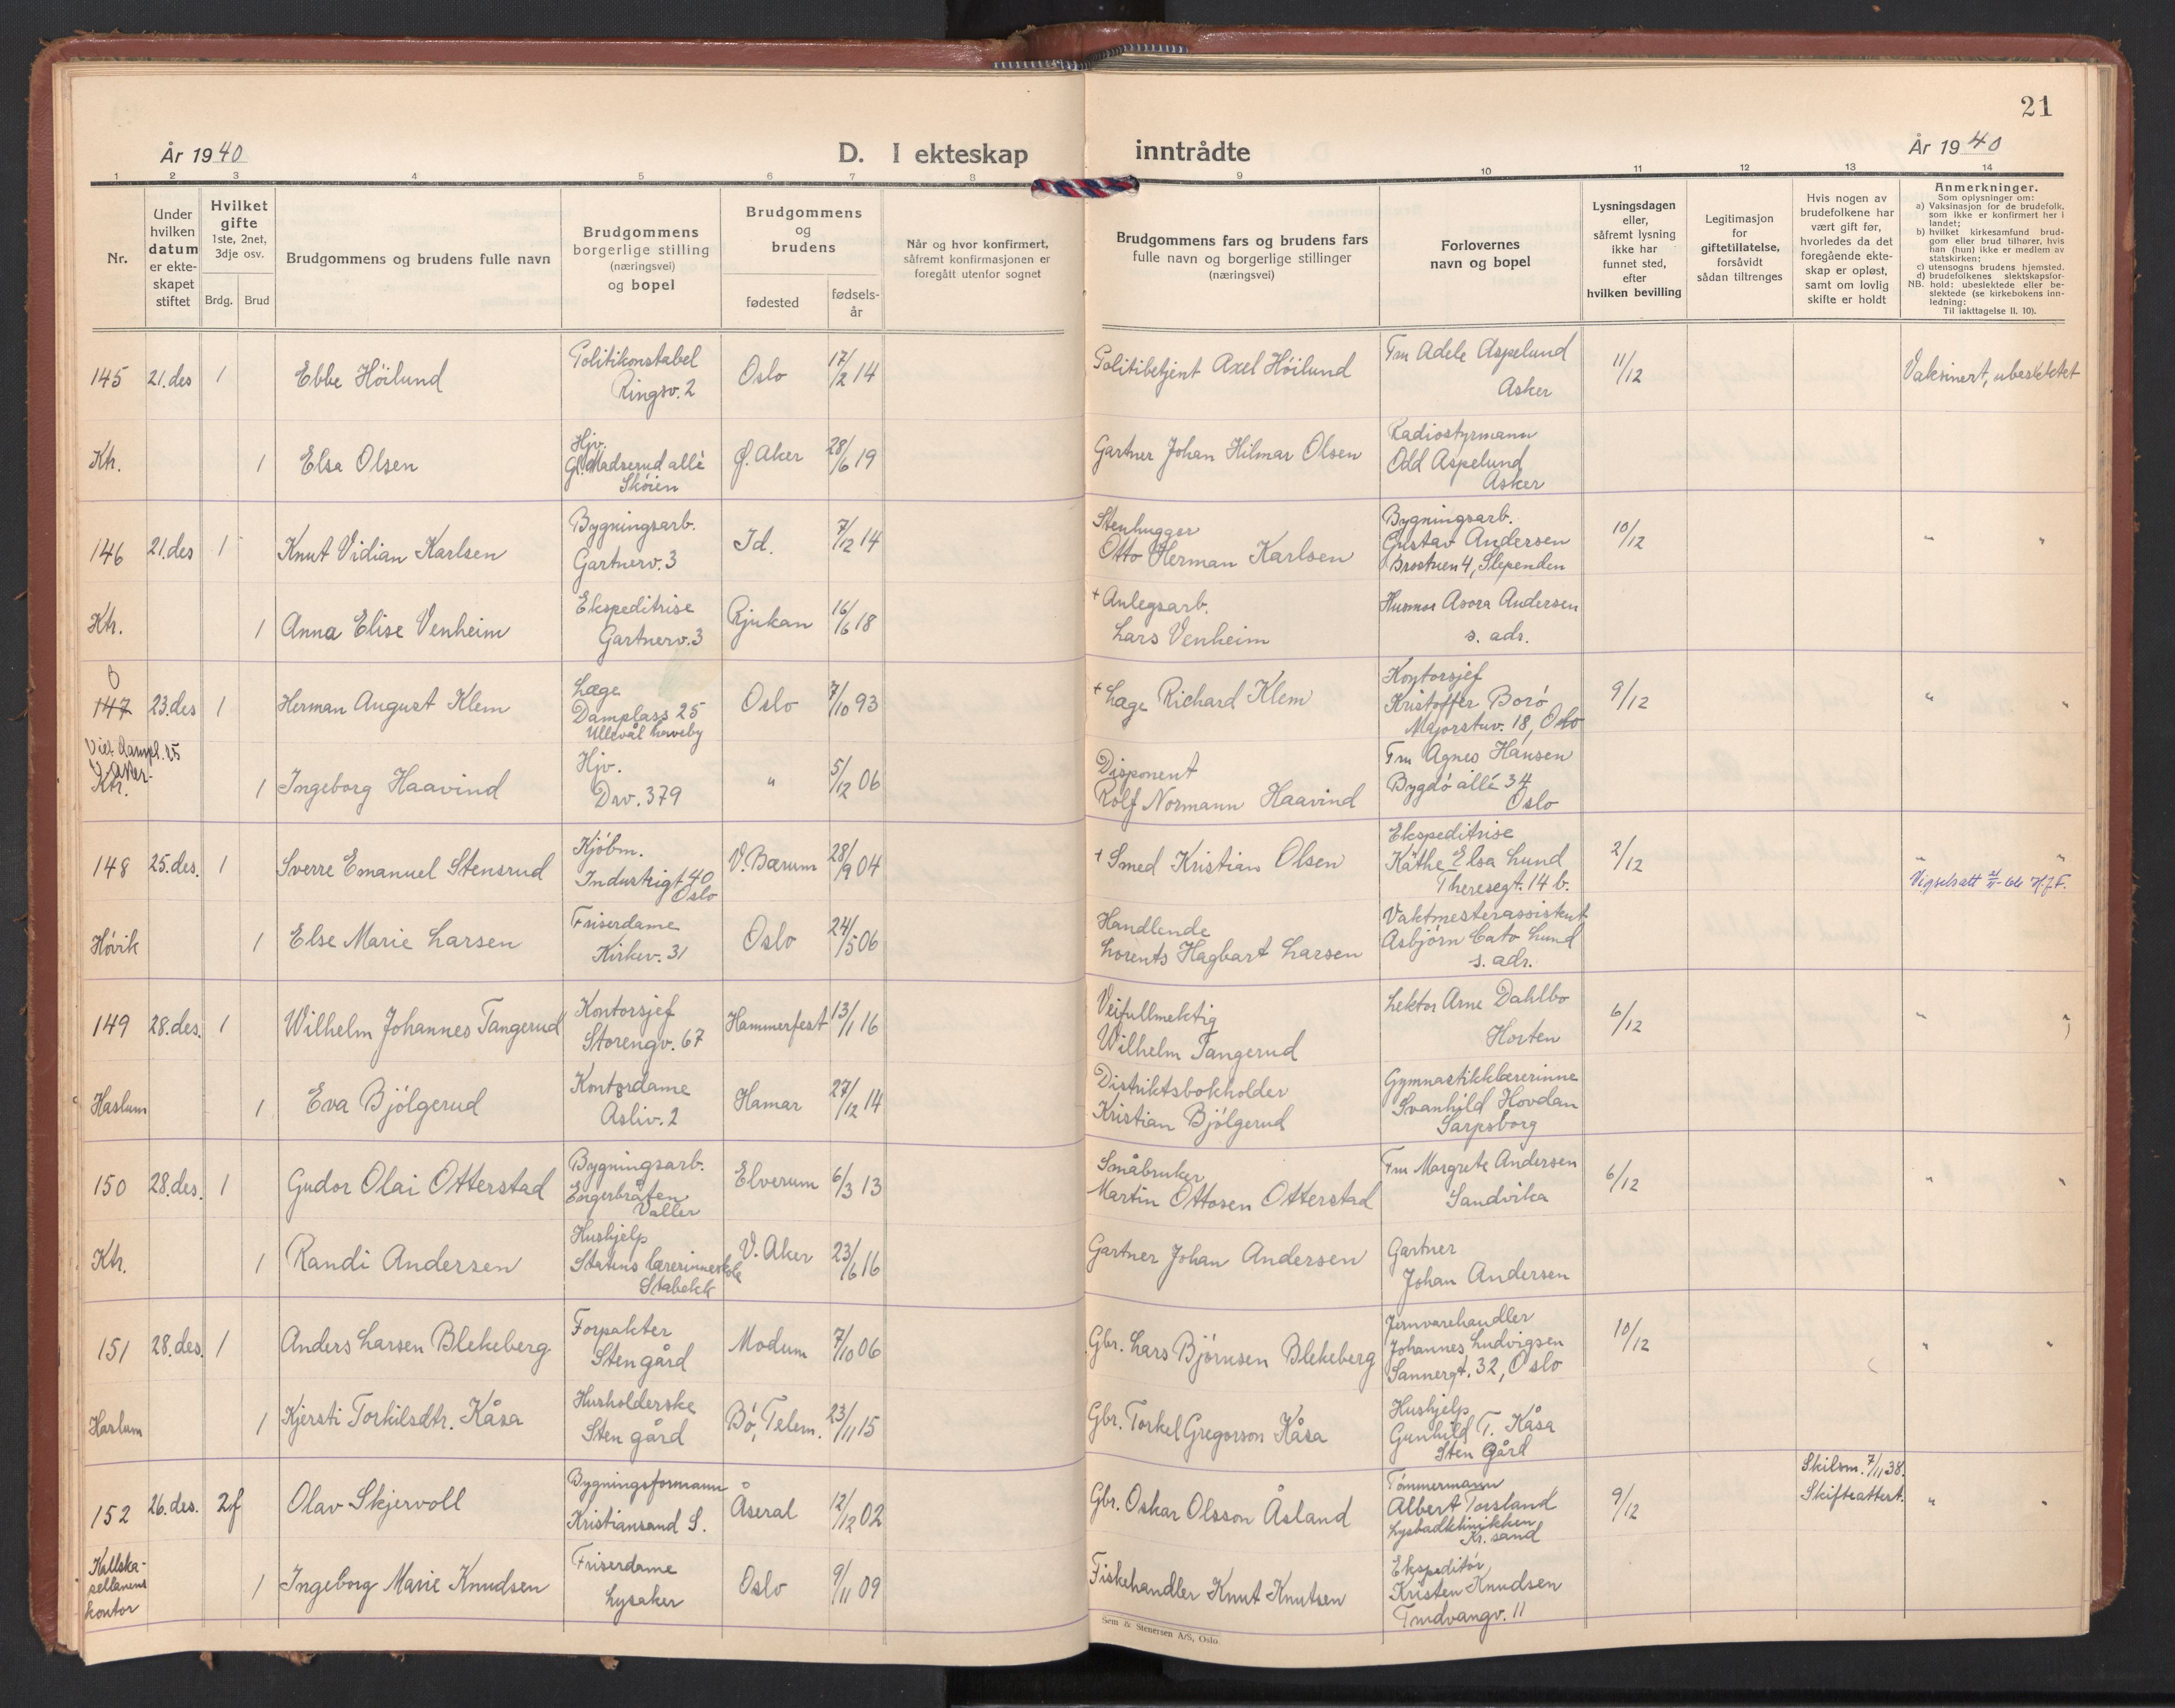 21
År 1940
D. I ekteskap inntrådte
År 1940
1 2 3 4 5 6 7 8 9 10 11 12 13 14
Nr.
Under hvilken datum er ekteskapet stiftet
Hvilket gifte
1ste, 2net, 3dje osv.
Brdg. Brud
Brudgommens og brudens fulle navn
Brudgommens
borgerlige stilling
(næringsvei)
og bopel
Brudgommens
og
brudens
fødested
fødsels-
år
Når og hvor konfirmert,
såfremt konfirmasjonen er
foregått utenfor sognet
Brudgommens fars og brudens fars
fulle navn og borgerlige stillinger
(næringsvei)
Forlovernes
navn og bopel
Lysningsdagen
eller,
såfremt lysning
ikke har
funnet sted,
efter
hvilken bevilling
Legitimasjon
for
giftetillatelse,
forsåvidt
sådan tiltrenges
Hvis nogen av
brudefolkene har
vært gift før,
hvorledes da det
foregående ekte-
skap er opløst,
samt om lovlig
skifte er holdt
Anmerkninger.
Som oplysninger om:
a) Vaksinasjon for de brudefolk,
som ikke er konfirmert her i
landet;
b) hvilket kirkesamfund brud-
gom eller brud tilhører, hvis
han (hun) ikke er medlem av
statskirken;
c) utensogns brudens hjemsted.
d) brudefolkenes slektskapsfor-
NB. hold: ubeslektede eller be-
slektede (se kirkebokens inn-
ledning:
Til iakttagelse II. 10).
145 21.des 1 Ebbe Höilund Politikonstabel Ringsv. 2 Oslo 17/2 14 Politibetjent Axel Höilund Fru Adele Aspelund Asker 11/12 Vaksinert, ubeslektet
Ktr. 1 Elsa Olsen Hjv. Gl. Madserud allè Sköien Ø. Aker 28/6 19 Gartner Johan Hilmar Olsen Radiostyrmann Odd Aspelund Asker
146 21.des 1 Knut Vidian Karlsen Bygningsarb. Gartnerv. 3 Id. 7/12 14 Stenhugger Otto Herman Karlsen Bygningsarb. Gustav Andersen 4, Slependen 10/12 " "
Ktr. 1 Anna Elise Venheim Ekspeditrise Gartnerv. 3 Rjukan 16/6 18 + Anlegsarb. Lars Venheim Husmor Asora Andersen s. adr.
147 23.des 1 Herman August Klem Læge Damplass 25 Ullevål haveby Oslo 7/10 93 + Læge Richard Klem Kontorsjef Kristoffer Borö Majorstuv. 18, Oslo 9/12 " "
Viet Dampl. 25 V. Aker.
Ktr. 1 Ingeborg Haavind Hjv. Drv. 379 " 5/12 06 Disponent Rolf Normann Haavind Fru Agnes Hansen Bygdö allé 34 Oslo
148 25.des. 1 Sverre Emanuel Stensrud Kjöbm. Industrigt 40 Oslo V. Bærum 28/9 04 + Smed Kristian Olsen Ekspeditrise Käthe Elsa Lund Theresegt. 14 b. 2/12 " "
Vigselsatt H.J.F.
Hövik 1 Else Marie Larsen Friserdame Kirkev. 31 Oslo 24/5 06 Handlende Lorents Hagbart Larsen Vaktmesterassistent Asbjörn Cato Lund s. adr.
149 28.des. 1 Wilhelm Johannes Tangerud Kontorsjef Storengv. 67 Hammerfest 13/1 16 Veifullmektig Wilhelm Tangerud Lektor Arne Dahlbo Horten 6/12 " "
Haslum 1 Eva Bjölgerud Kontordame Åsliv. 2 Hamar 27/12 14 Distriktsbokholder Kristian Bjölgerud Gymnastikklærerinne Svanhild Hovdan Sarpsborg
150 28.des. 1 Gudor Olai Otterstad Bygningsarb. Engerbråten Valler Elverum 6/3 13 Småbruker Martin Ottosen Otterstad Fru Margrete Andersen Sandvika 6/12 " "
Ktr. 1 Randi Andersen Hushjelp Statens lærerinneskole Stabekk V. Aker 23/6 16 Gartner Johan Andersen Gartner Johan Andersen
151 28.des. 1 Anders Larsen Blekeberg Forpakter Sten gård Modum 7/10 06 Gbr. Lars Björnsen Blekeberg Jernvarehandler Johannes Ludvigsen Sannergt. 32, Oslo 10/12 " "
Haslum 1 Kjersti Torkilsdtr. Kåsa Husholderske Sten gård Bö, Telem. 23/11 15 Gbr. Torkel Gregorson Kåsa Hushjelp Gunhild T. Kåsa Sten Gård
152 26.des. 2f Olav Skjervoll Bygningsformann Kristiansand S. Åseral 12/12 02 Gbr. Oskar Olsson Åsland Tömmermann Albert Torsland Lysbadklinikken Kr. sand 9/12 Skilsm. 7/11 38. Skifteattest. " "
Kallskapellanens kontor 1 Ingeborg Marie Knudsen Friserdame Lysaker Oslo 9/11 09 Fiskehandler Knut Knutsen Ekspeditör Kristen Knudsen Trudvangv. 11
Sem & Stenersen A/S, Oslo